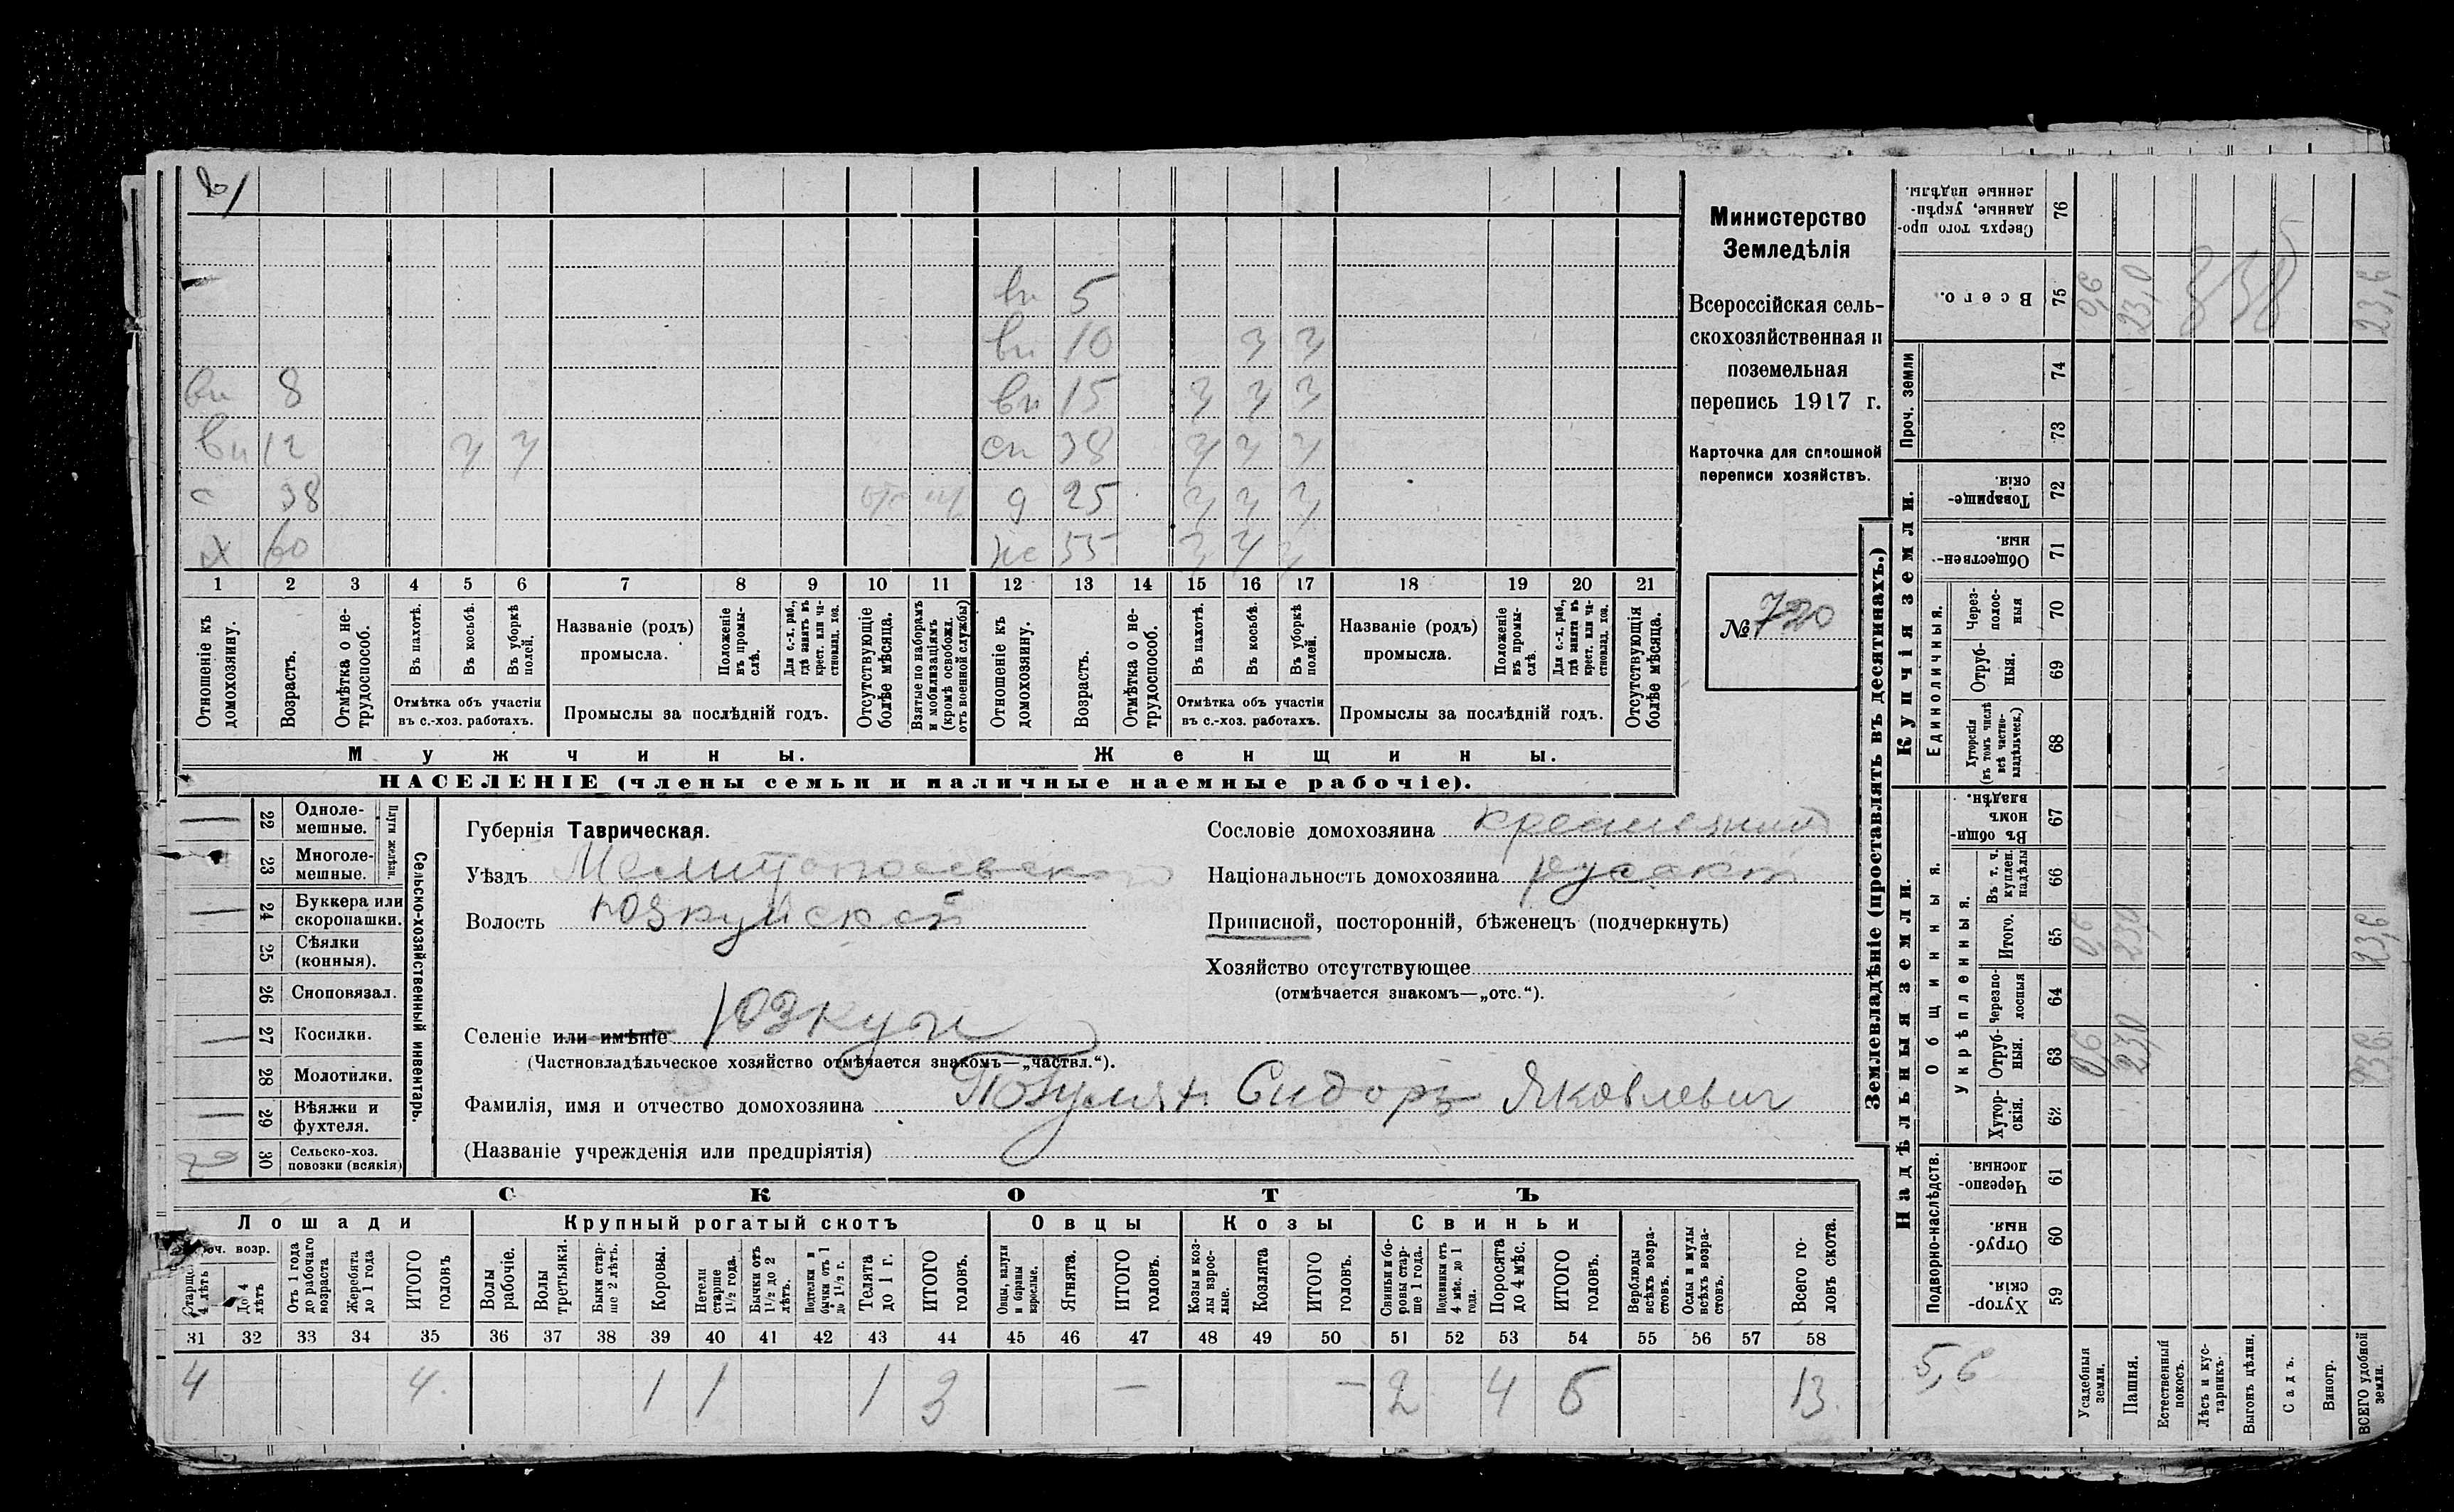 вп 5
вп 10 з з
вп 8 вп 15 з з з
вп 12 з з сп 38 з з з
с 38 д 25 з з з
х 60 ж 55 з з з
1 2 3 4 5 6 7 8 9 10 11 12 13 14 15 16 17 18 19 20 21
Отношеніе къ домохозяину.
Возрастъ.
Отмѣтка о не-
трудоспособ.
Въ пахотѣ.
Въ косьбѣ.
Въ уборкѣ
полей.
Отмѣтка объ участіи
въ с.-хоз. работахъ.
Названіе (родъ)
промысла.
Положеніе
въ промы-
слѣ.
Для с.-х. раб.,
гдѣ занятъ въ
крест. или ча-
стновлад. хоз.
Промыслы за послѣдній годъ.
Отсутствующіе
болѣе мѣсяца.
Взятые по наборамъ
и мобилизаціямъ
(кромѣ освобожд.
отъ военной службы)
Отношеніе къ
домохозяину.
Возрастъ.
Отмѣтка о не-
трудоспособ.
Въ пахотѣ.
Въ косьбѣ.
Въ уборкѣ
полей.
Отмѣтка объ участіи
въ с.-хоз. работахъ.
Названіе (родъ)
промысла.
Положеніе
въ промы-
слѣ.
Для с.-х. раб.,
гдѣ занята въ
крест. или ча-
стновлад. хоз.
Промыслы за послѣдній годъ.
Отсутствующія
болѣе мѣсяца.
Мужчины.
Женщины.
НАСЕЛЕНІЕ (члены семьи и наличные наемные рабочіе).
Министерство
Земледѣлія
Всероссійская сель-
скохозяйственная и
поземельная
перепись 1917 г.
Карточка для сплошной
переписи хозяйствъ.
№ 720
22 Одноле-
мешные.
23 Многоле-
мешные.
Плуги желѣзн.
24 Буккера или
скоропашки.
25 Сѣялки
(конныя).
26 Сноповязал.
27 Косилки.
28 Молотилки.
29 Вѣялки и
фухтеля.
30 Сельско-хоз.
повозки (всякія)
Сельско-хозяйственный инвентарь.
Губернія Таврическая.
Уѣздъ Мелитопольскаго
Волость Юзкуйской
Селеніе или имѣніе Юзкуи
(Частновладѣльческое хозяйство отмѣчается знакомъ—„частвл.“).
Фамилія, имя и отчество домохозяина Сидоръ Яковлевич
(Названіе учрежденія или предпріятія)
Сословіе домохозяина крестьянин
Національность домохозяина русскій
Приписной, посторонній, бѣженецъ (подчеркнуть)
Хозяйство отсутствующее
(отмѣчается знакомъ—„отс.“).
СКОТЪ
Лошади
Крупный рогатый скотъ
Овцы
Козы
Свиньи
Старше
4 лѣтъ
До 4
лѣтъ
Отъ 1 года
до рабочаго
возраста
Жеребята
до 1 года
ИТОГО
головъ
Волы
рабочіе.
Волы
третьяки.
Быки стар-
ше 2 лѣтъ.
Коровы.
Нетели
старше
1½ года.
Бычки отъ
1½ до 2
лѣтъ.
Подтелки и
бычки отъ 1
до 1½ г.
Телята
до 1 г.
ИТОГО
головъ.
Овцы, валухи
и бараны
взрослые.
Ягнята.
ИТОГО
головъ.
Козы и коз-
лы взрос-
лые.
Козлята
ИТОГО
головъ.
Свиньи и бо-
ровы стар-
ше 1 года.
Подсвинки отъ
4 мѣс. до 1
года.
Поросята
до 4 мѣс.
ИТОГО
головъ.
Верблюды
всѣхъ возра-
стовъ.
Ослы и мулы
всѣхъ возра-
стовъ.
Всего го-
ловъ скота.
31 32 33 34 35 36 37 38 39 40 41 42 43 44 45 46 47 48 49 50 51 52 53 54 55 56 57 58
4 4. 1 1 1 3 — — 2 4 6 13.
Землевладѣніе (проставлять въ десятинахъ.)
Надѣльныя земли.
Купчія земли.
Проч. земли
Подворно-наслѣдств.
Общинныя.
Укрѣпленныя.
Единоличныя.
Сверхъ того про-
данные, укрѣп-
ленные надѣлы.
76
Всего.
75 0,6 23,0 23,6
74
73
Товарище-
скія.
72
Обществен-
ныя.
71
Через-
полос-
ныя
70
Отруб-
ныя.
69
Хуторскія
(въ томъ числѣ
всѣ частно-
владѣльческ.)
68
Въ общи
номъ
владѣн.
67
Въ т. ч.
куплен.
надѣлы
66
Итого.
65 0,6 23,0 23,6
Черезпо-
лосныя
64
Отруб-
ныя.
63 0,6 23,0 23,6
Хутор-
скія.
62
Черезпо-
лосныя.
61
Отруб-
ныя.
60
Хутор-
скія.
59
5,6
Усадебныя
земли.
Пашня.
Естественный
покосъ.
Лѣсъ и кус-
тарникъ.
Выгонъ цѣлин.
Садъ.
Виногр.
ВСЕГО удобной
земли.